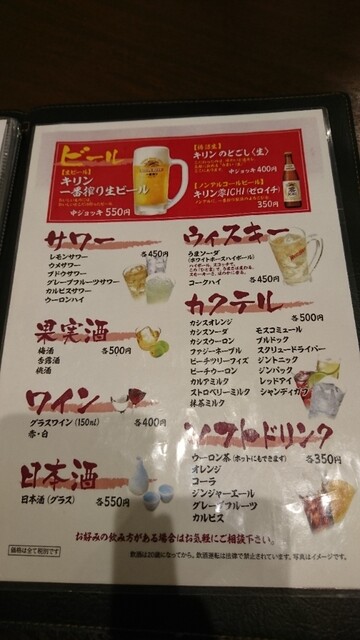 ビール
【生ビール】
キリン
一番搾り生ビール
中ジョッキ 550円
キリン のどごし〈生〉
中ジョッキ 400円
【ノンアルコールビール】
キリン零ICHI(ゼロイチ)
350円
サワー
各450円
レモンサワー
ウメサワー
ブドウサワー
グレープフルーツサワー
カルピスサワー
ウーロンハイ
ウィスキー
うまソーダ
(ホワイトホースハイボール)
コークハイ 各450円
果実酒
梅酒 各500円
杏露酒
桃酒
カクテル
各500円
カシスオレンジ
カシスソーダ
カシスウーロン
ファジーネーブル
ピーチツリーフィズ
ピーチウーロン
カルアミルク
ストロベリーミルク
抹茶ミルク
モスコミュール
ブルドック
スクリュードライバー
ジントニック
ジンバック
レッドアイ
シャンディガフ
ワイン
グラスワイン (150ml) 各400円
赤・白
ソフトドリンク
ウーロン茶 (ホットにもできます) 各350円
オレンジ
コーラ
ジンジャーエール
グレープフルーツ
カルピス
日本酒
日本酒 (グラス) 各550円
お好みの飲み方がある場合はお気軽にご相談下さい。
価格は全て税別です
飲酒は20歳になってから。飲酒運転は法律で禁止されています。写真はイメージです。